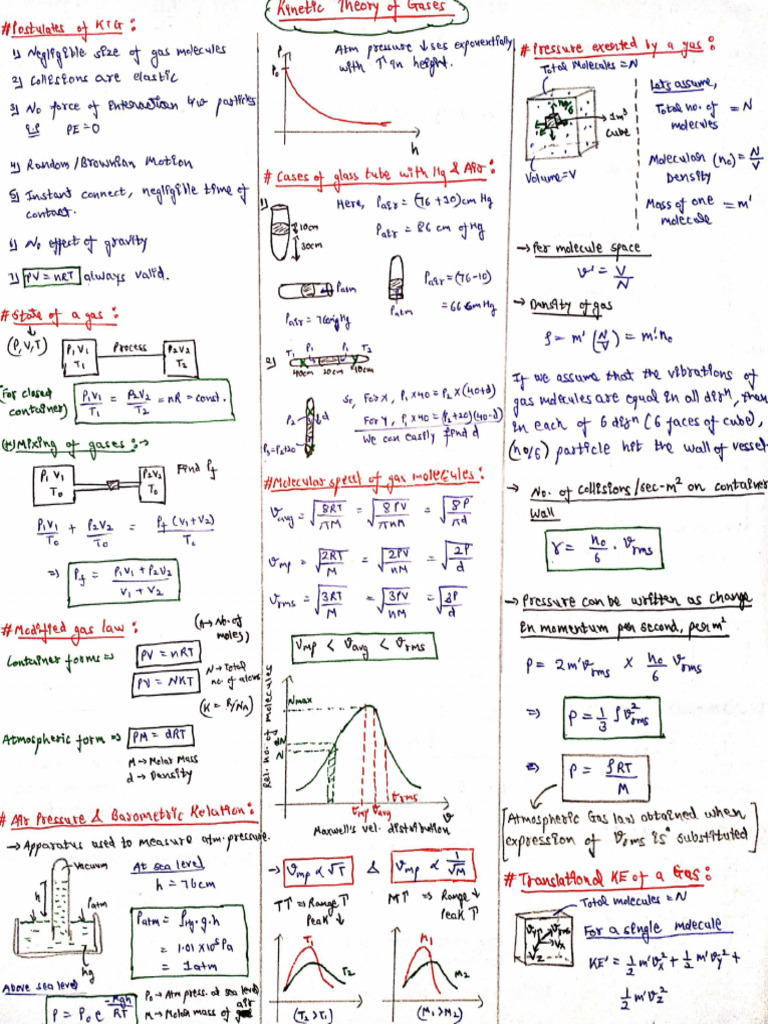 Kinetic Theory of Gases
# Postulates of KTG:
1) Negligible size of gas molecules
2) Collisions are elastic
3) No force of interaction b/w particles
PE=0
4) Random/Brownian Motion
5) Instant connect, negligible time of
contact.
6) No effect of gravity
7) PV = nRT always valid.
# State of a gas:
(P, V, T)
P1V1
T1
Process
P2V2
T2
(For closed
container)
P1V1/T1 = P2V2/T2 = nR = const.
Mixing of gases:→
P1 V1
T0
P2V2
T0
Find Pf
P1V1/T0 + P2V2/T0 = Pf (V1+V2)/T0
⇒ Pf = P1V1 + P2V2 / V1 + V2
# Modified gas law:
(n→ No. of
moles)
Container forms⇒
PV = nRT
PV = NKT
N→ Total
no. of atoms
(K = R/NA)
Atmospheric form ⇒ PM = dRT
M → Molar Mass
d → Density
# Air Pressure & Barometric Relation:
→ Apparatus used to measure atm. pressure.
Vacuum
h
Patm
hg
At sea level
h = 76cm
Patm = ρHg.g.h
= 1.01 × 10⁵ Pa
= 1 atm
Above sea level
P = P0 e^-Mgh/RT
P0 → Atm press. at sea level
M → Molar mass of air
P
P0
h
Atm pressure ↓ses exponentially
with ↑ in height.
# Cases of glass tube with Hg & Air:
1)
10cm
30cm
Here, Pair = (76 + 10) cm Hg
Pair = 86 cm of Hg
Patm
Pair = 76cmHg
Patm
Pair = (76-10)
= 66 cm Hg
2)
T1 P1 P1 T2
40cm 20cm 40cm
P2
d
P3=P2+20
So, For X, P1×40 = P2×(40+d)
For Y, P1×40 = (P2+20)(40-d)
We can easily find d
# Molecular speed of gas molecules:
Vavg = √8RT/πM = √8PV/πnM = √8P/πd
Vmp = √2RT/M = √2PV/nM = √2P/d
Vrms = √3RT/M = √3PV/nM = √3P/d
Vmp < Vavg < Vrms
Rel. no. of molecules
Nmax
dN
N
Vmp Vavg Vrms
V
Maxwell's vel. distribution
→ Vmp ∝ √T & Vmp ∝ 1/√M
T↑ ⇒ Range ↑
Peak ↓
M↑ ⇒ Range ↓
Peak ↑
T1
T2
(T2 > T1)
M1
M2
(M1 > M2)
# Pressure exerted by a gas:
Total Molecules = N
n0/6
1m³
cube
Volume = V
Let's assume,
Total no. of
molecules = N
Molecular (n0) = N/V
Density
Mass of one
molecule = m'
→ Per molecule space
v' = V/N
→ Density of gas
ρ = m' (N/V) = m'.n0
If we assume that the vibrations of
gas molecules are equal in all dirⁿ, then
in each of 6 dirⁿ (6 faces of cube),
(n0/6) particle hit the wall of vessel
→ No. of collisions/sec-m² on container
wall
r = n0/6 . Vrms
→ Pressure can be written as change
in momentum per second, per m²
P = 2m'Vrms × n0/6 Vrms
⇒ P = 1/3 ρV²rms
⇒ P = ρRT/M
[Atmospheric Gas law obtained when
expression of Vrms is substituted]
# Translational KE of a Gas:
Total molecules = N
Vy
Vrms
Vx
Vz
For a single molecule
KE' = 1/2 m'Vx² + 1/2 m'Vy² +
1/2 m'Vz²